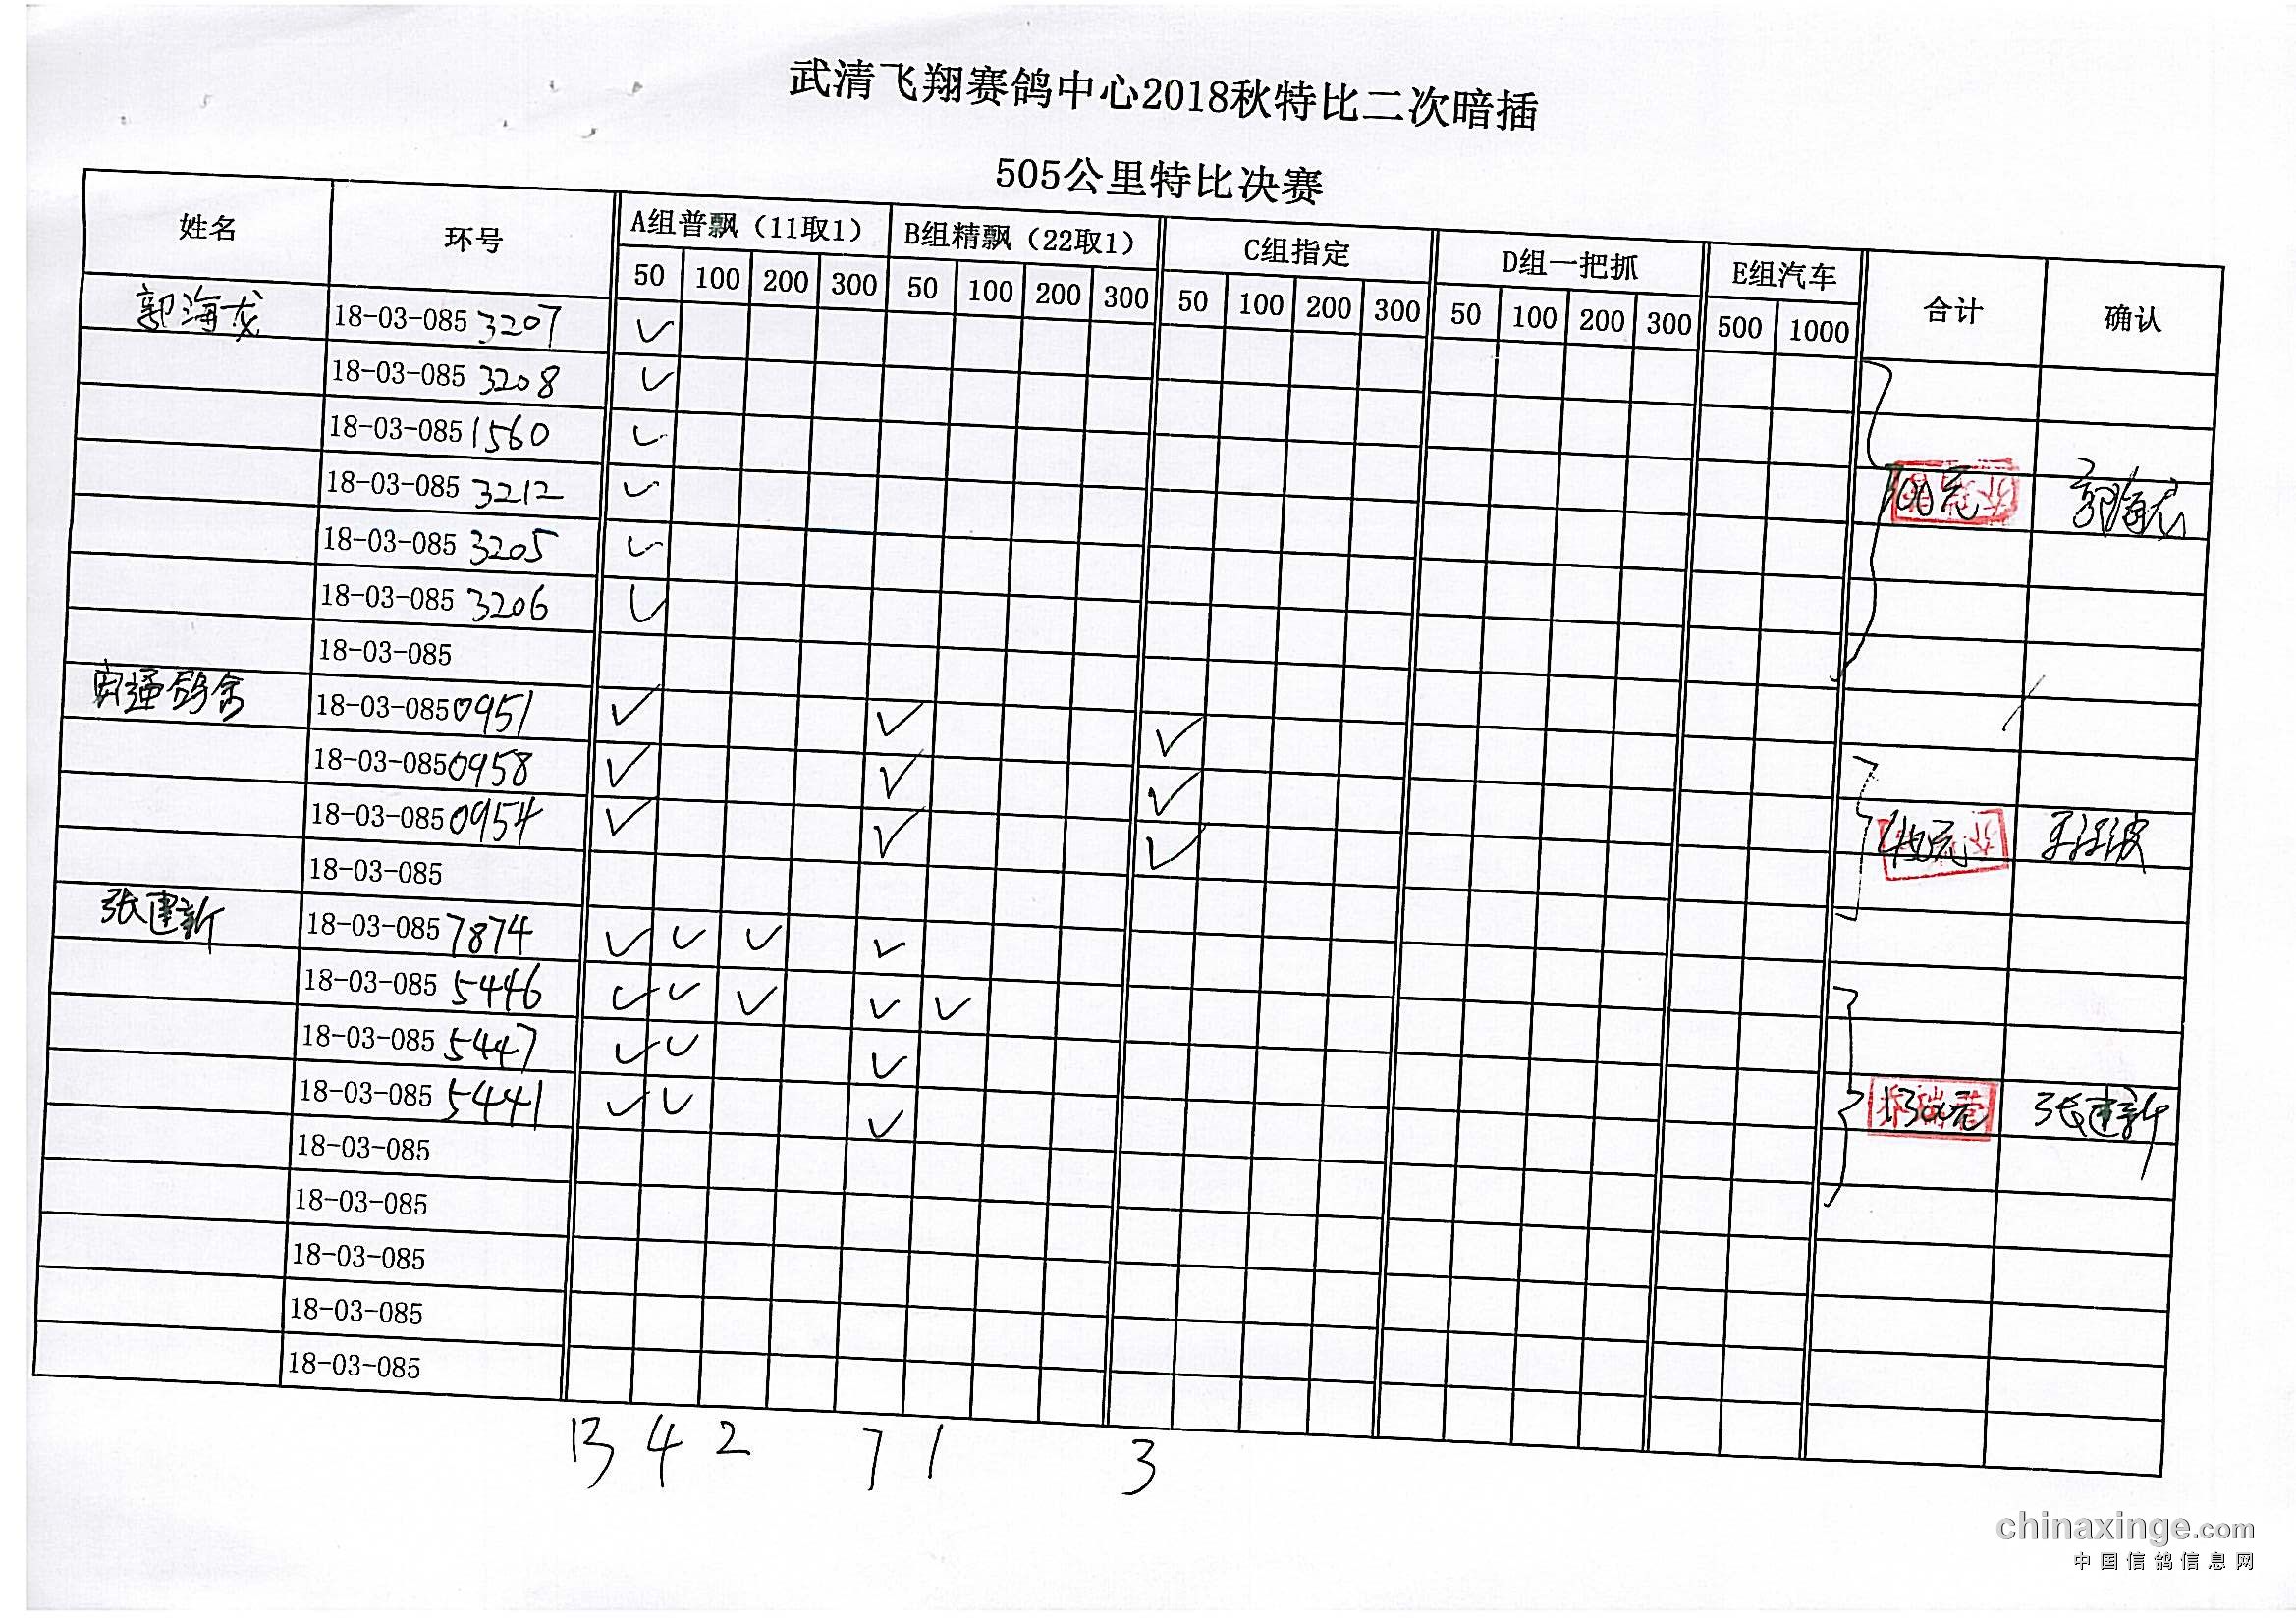 武清飞翔赛鸽中心2018秋特比二次暗插
505公里特比决赛
姓名 环号 A组普飘（11取1） B组精飘（22取1） C组指定 D组一把抓 E组汽车 合计 确认
50 100 200 300 50 100 200 300 50 100 200 300 50 100 200 300 500 1000
郭海龙 18-03-085 3207 ✓
18-03-085 3208 ✓
18-03-085 1560 ✓
18-03-085 3212 ✓ 300元 郭海龙
18-03-085 3205 ✓
18-03-085 3206 ✓
18-03-085
通鸽舍 18-03-085 0951 ✓ ✓ ✓
18-03-085 0958 ✓ ✓ ✓
18-03-085 0954 ✓ ✓ ✓ 450元
18-03-085
张建新 18-03-085 7874 ✓ ✓ ✓ ✓
18-03-085 5446 ✓ ✓ ✓ ✓ ✓
18-03-085 5447 ✓ ✓ ✓
18-03-085 5441 ✓ ✓ ✓ 1300元 张建新
18-03-085
18-03-085
18-03-085
18-03-085
18-03-085
13 4 2 7 1 3
chinaxinge.com
中国信鸽信息网